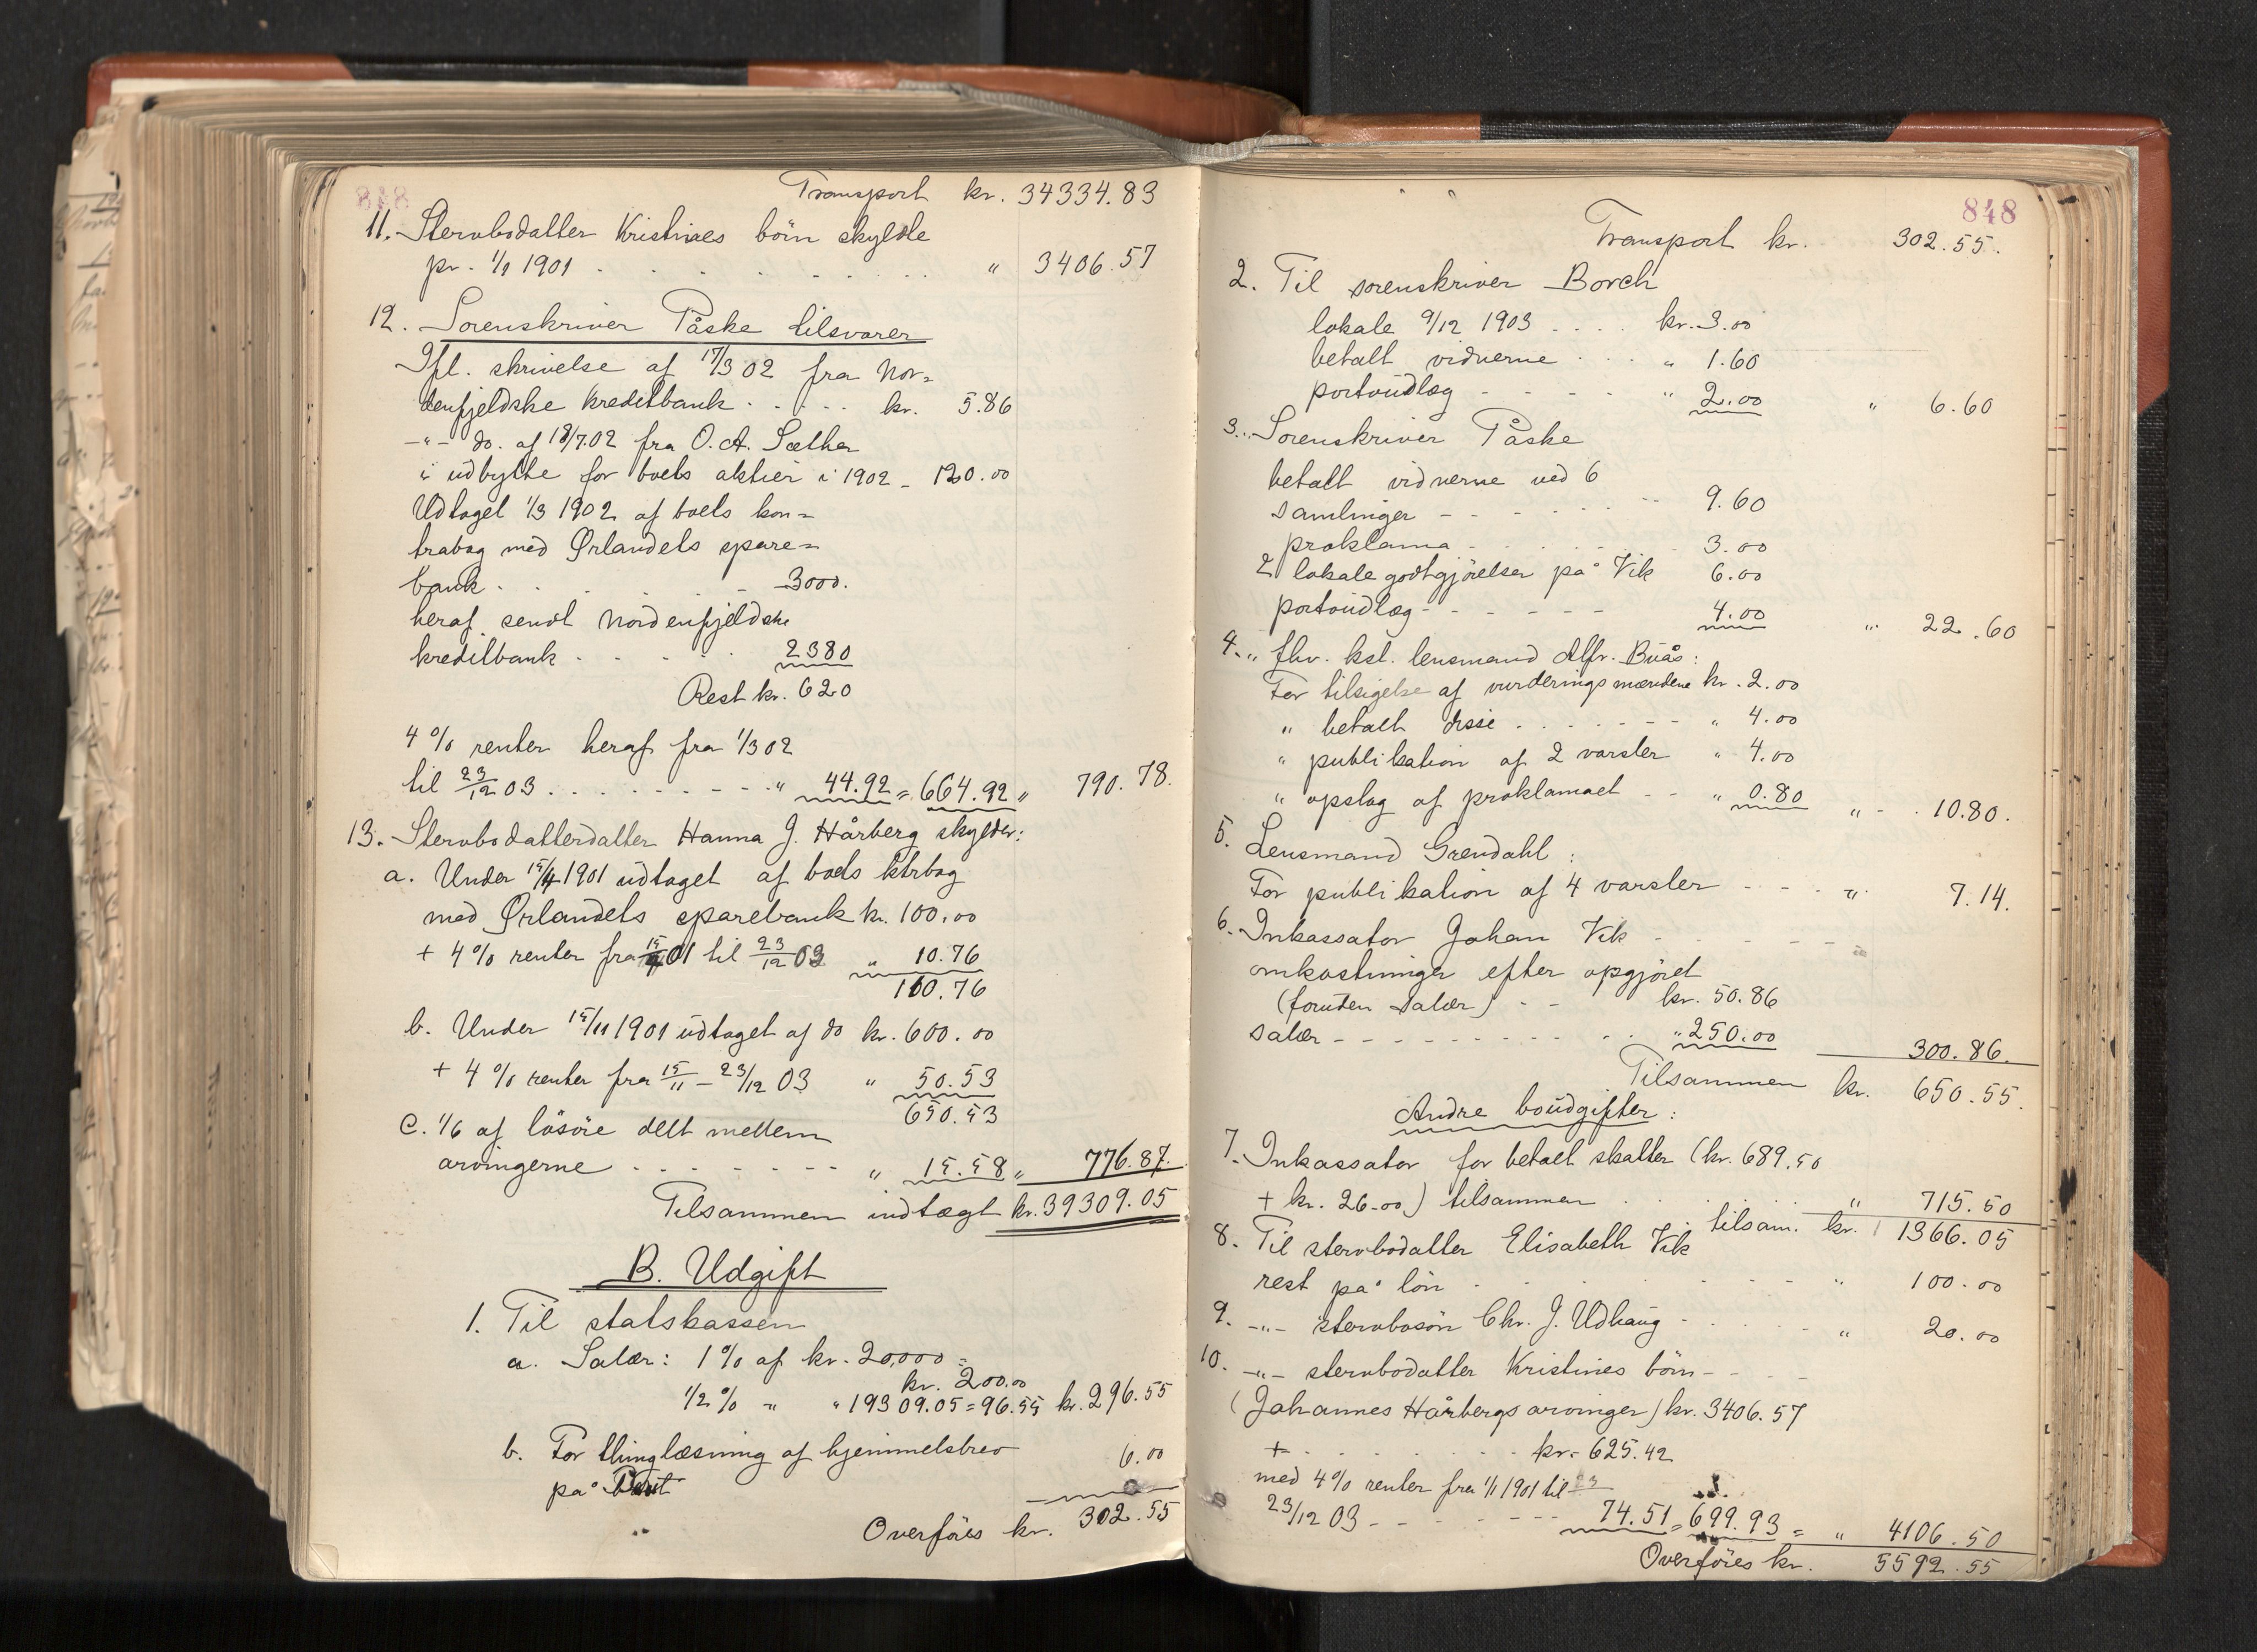 Transport kr. 34334.83
11. Stervbodatter Kristines börn skyldte
pr. 1/1 1901 . . . . . . . " 3406.57
12. Sorenskriver Påske tilsvarer
Ifl. skrivelse af 17/3 02 fra Nor=
denfjeldske kreditbank . . . . . kr. 5.86
-"- do. af 18/7.02 fra O. A. Sæther
i udbytte for boets aktier i 1902 - 120.00
Udtaget 1/3 1902 af boets kon=
trabog med Ørlandets spare=
bank . . . . - 3000.
heraf sendt Nordenfjeldske
kreditbank . . . . . 2380
Rest kr. 620
4 % renter heraf fra 1/3 02
til 23/12 03 . . . . . . . . " 44.92 = 664.92 " 790.78.
13. Stervbodatterdatter Hanna J. Hårberg skylder:
a. Under 15/4 1901 udtaget af boets ktrbog
med Ørlandets sparebank kr. 100.00
+ 4 % renter fra 15/4 01 til 23/12 03 " 10.76
110.76
b. Under 15/11 1901 udtaget af do kr. 600.00
+ 4 % renter fra 15/11 - 23/12 03 " 50.53
650.53
c. 1/6 af lösöre delt mellem
arvingerne . . . . . . . " 15.58 " 776.87.
Tilsammen indtægt kr. 39309.05
B. Udgift
1. Til statskassen
a. Salær: 1 % af kr. 20,000 =
kr. 200.00
1/2 % " " 19309.05 = 96.55 kr. 296.55
b. For thinglæsning af hjemmelsbrev
på 6.00
Overföres kr. 302.55
848
Transport kr. 302.55.
2. Til sorenskriver Borch
lokale 9/12 1903 . . . . kr. 3.00
betalt vidnerne . . . " 1.60
portoudlæg - - - - " 2.00 " 6.60
3. " Sorenskriver Påske
betalt vidnerne ved 6
samlinger - - - - - - 9.60
proklama - - - - - 3.00
2 lokale godtgjörelser på Vik 6.00
portoudlæg - - - - - - 4.00 " 22.60
4. " fhv. kst. lensmand Alfr. Buås:
For tilsigelse af vurderingsmændene kr. 2.00
" betalt disse . . . . . . . " 4.00
" publikation af 2 varsler " 4.00
" opslag af proklamaet - - " 0.80 " - . 10.80.
5. Lensmand Grendahl:
For publikation af 4 varsler - - - . " 7.14.
6. Inkassator Johan Vik - - - - - -
omkostninger efter opgjöret
(foruden salær) - - kr. 50.86
salær - - - - - - - - - . . " 250.00 300.86.
Tilsammen kr. 650.55.
Andre boudgifter:
7. Inkassator for betalt skatter (kr. 689.50
+ kr. 26.00) tilsammen . . . . . " 715.50
tilsam. kr. 1366.05
8. Til stervbodatter Elisabeth Vik
rest på lön . . . . . . . . " 100.00
9. -"- stervbosön Chr. J. Udhaug - . . . . " 20.00
10. -"- stervbodatter Kristines börn - - - -
(Johannes Hårbergs arvinger) kr. 3406.57
+ . . . . . . . kr. 625.42
med 4 % renter fra 1/1 1901 til
23/12 03 - - - - - - - 74.51 = 699.93 = " 4106.50
Overföres kr. 5592.55